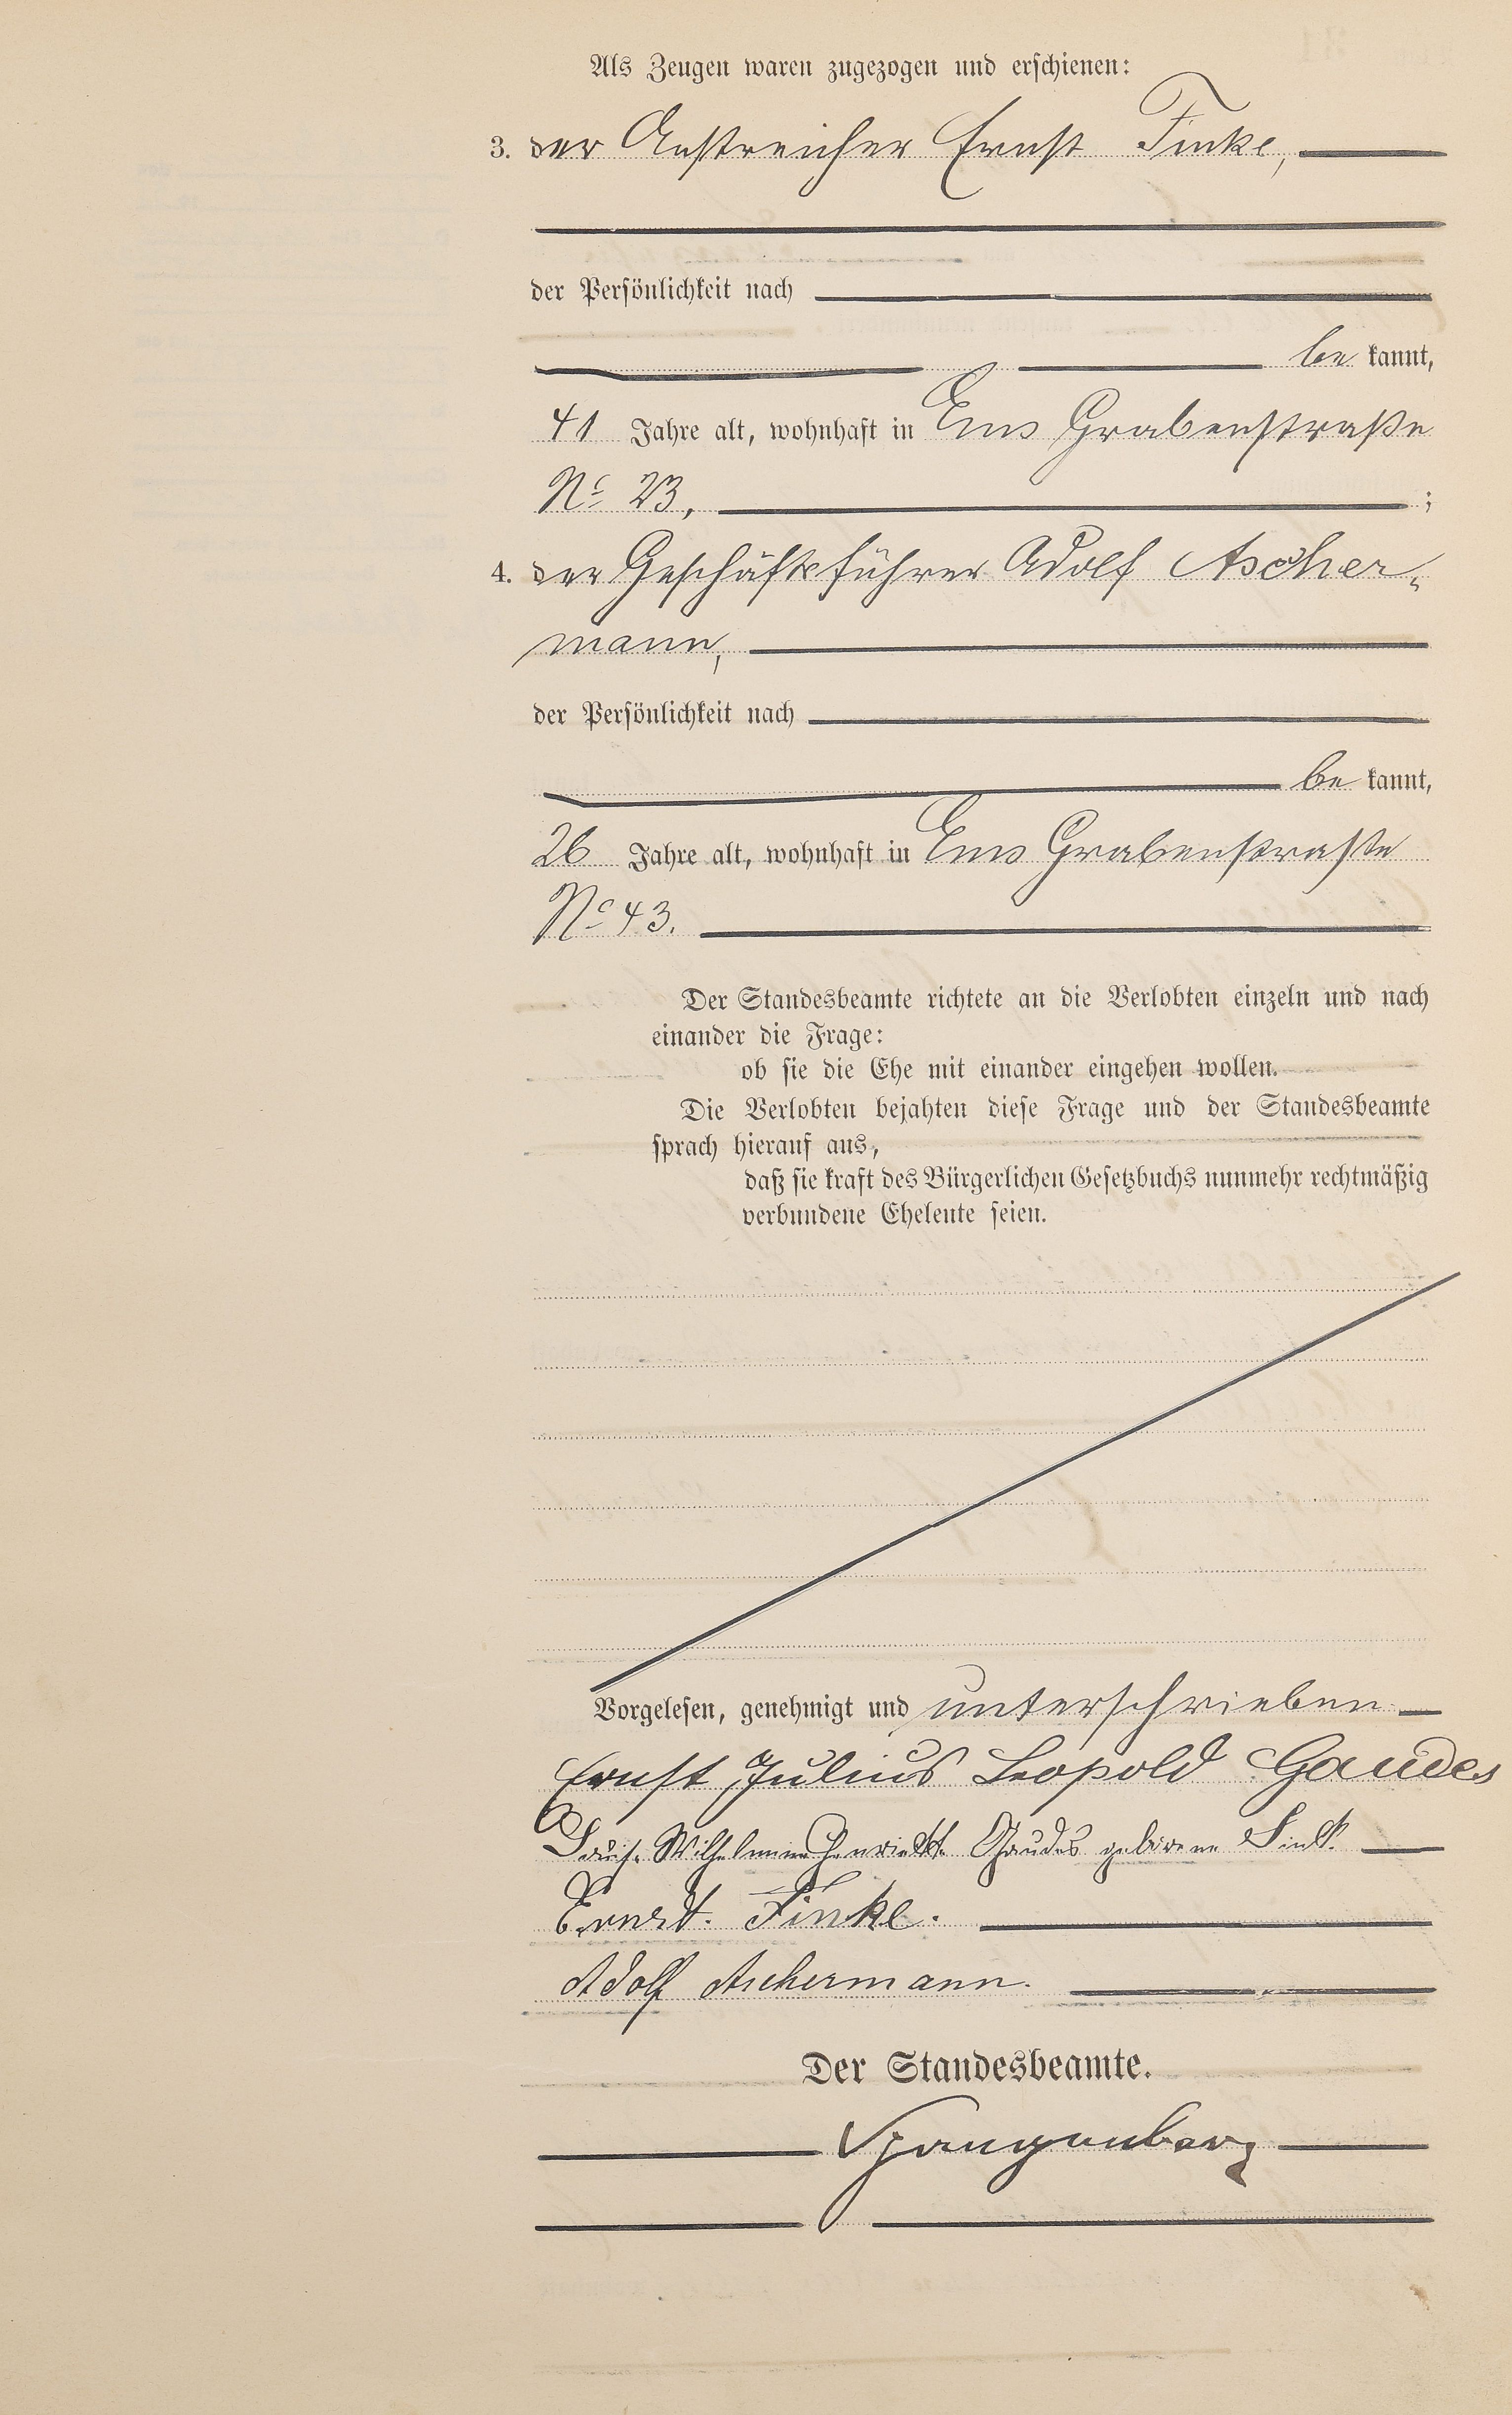 Als Zeugen waren zugezogen und erschienen:
3. der Anstreicher Ernst Finke,
der Persönlichkeit nach
be kannt,
41 Jahre alt, wohnhaft in Ems Grabenstraße
No 23, ;
4. der Geschäftsführer Adolf Ascher-
mann,
der Persönlichkeit nach
be kannt,
26 Jahre alt, wohnhaft in Ems Grabenstraße
No 43.
Der Standesbeamte richtete an die Verlobten einzeln und nach
einander die Frage:
ob sie die Ehe mit einander eingehen wollen.
Die Verlobten bejahten diese Frage und der Standesbeamte
sprach hierauf aus,
daß sie kraft des Bürgerlichen Gesetzbuchs nunmehr rechtmäßig
verbundene Eheleute seien.
Vorgelesen, genehmigt und unterschrieben
Ernst Julius Leopold Gaudes
Wilhelmine Henriette Gaudes geborene
Ernst. Finke.
Adolf Aschermann.
Der Standesbeamte.
Spangenberg